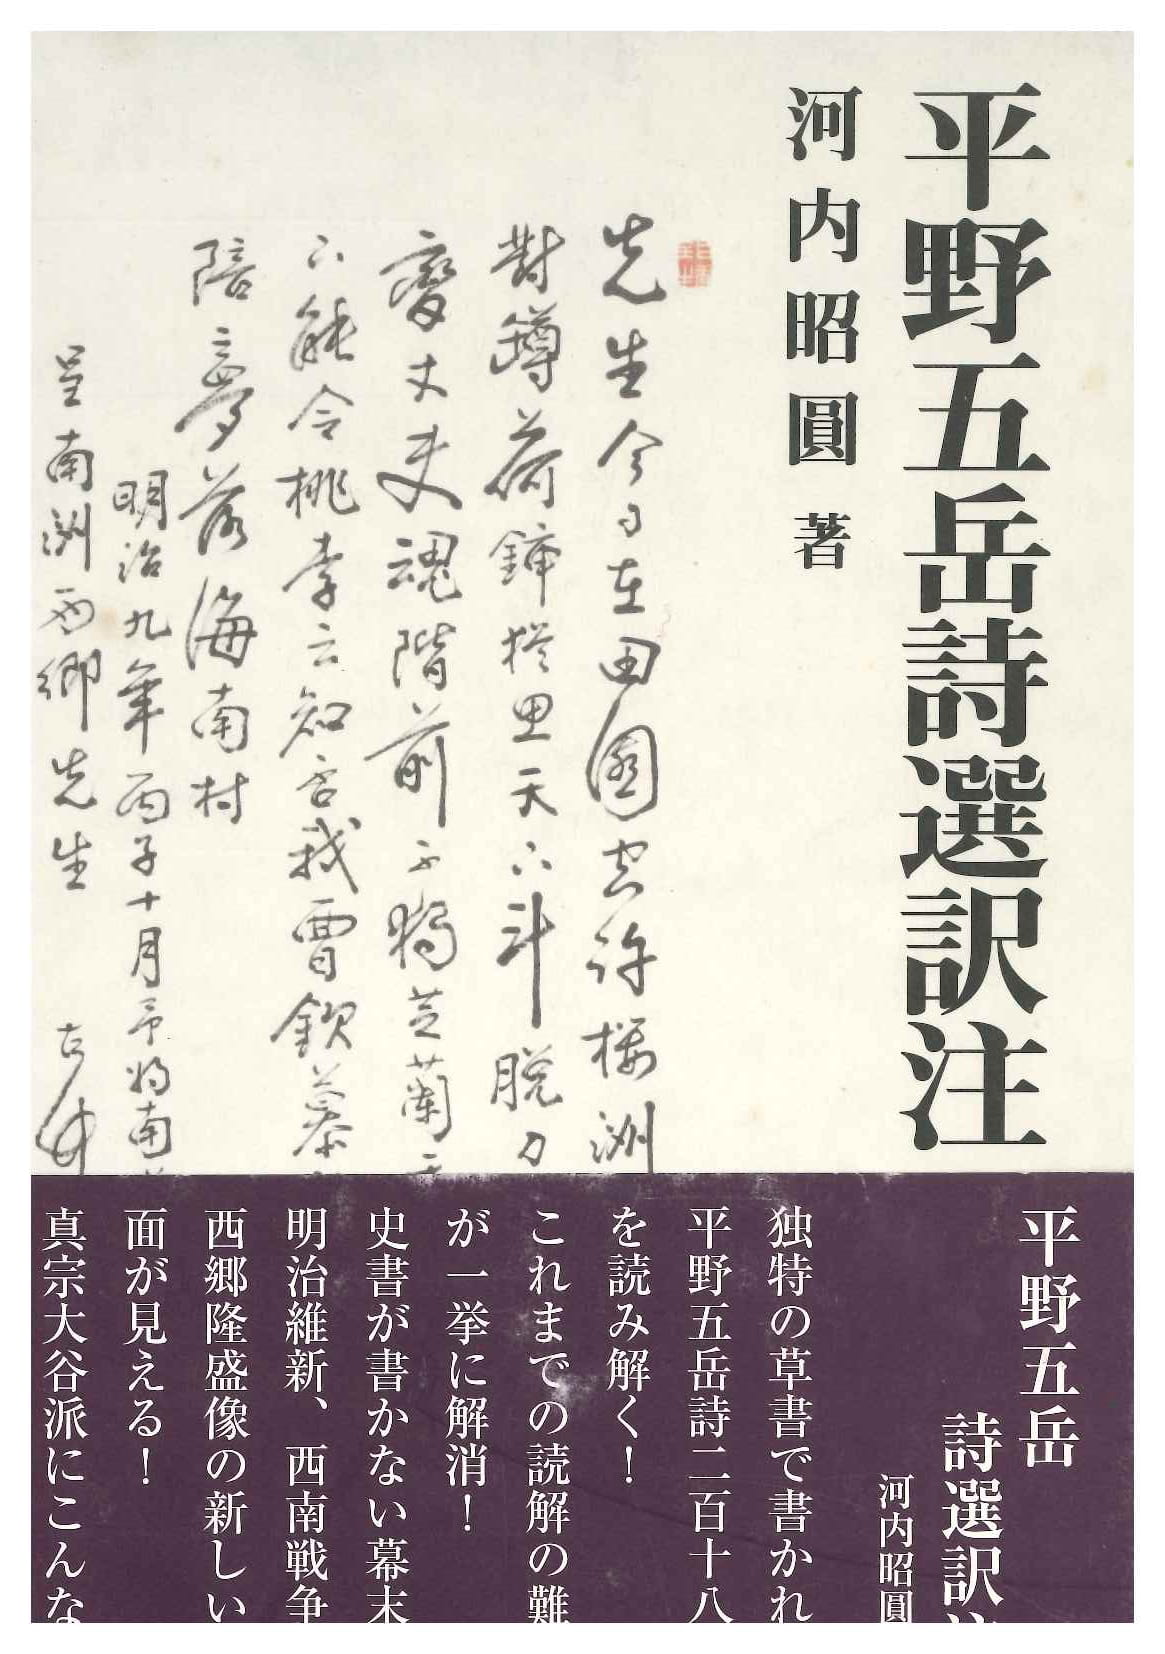 平野五岳詩選訳注
河内昭圓 著
先生今日在田園
荷鋤 思天下計脱刀
磨丈夫魂階前不獨芝蘭
下能令桃李言知否我曹欽慕
夢落海南村
明治九年丙子十月予将南
呈南洲西郷先生 古竹
平野五岳
詩選訳注
河内昭圓
独特の草書で書かれ
平野五岳詩二百十八
を読み解く!
これまでの読解の難
が一挙に解消!
史書が書かない幕末
明治維新、西南戦争
西郷隆盛像の新しい
面が見える!
真宗大谷派にこんな